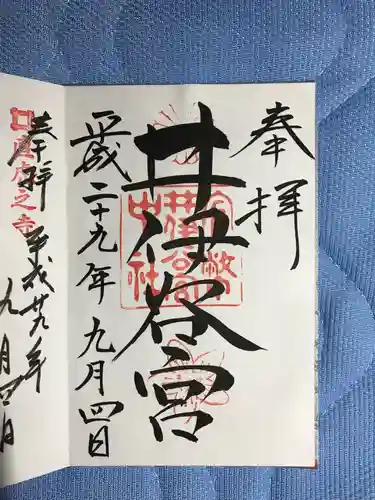 奉拝
井伊谷宮
官幣
井伊谷宮
中社
平成二十九年九月四日
奉拝
平成廿九年
九月四日